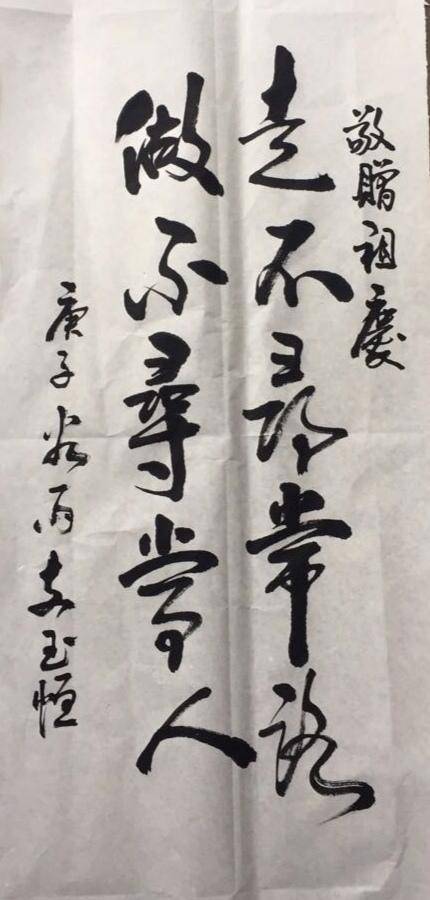 敬贈祖慶
走不尋常路
做不尋常人
庚子谷雨支玉恒